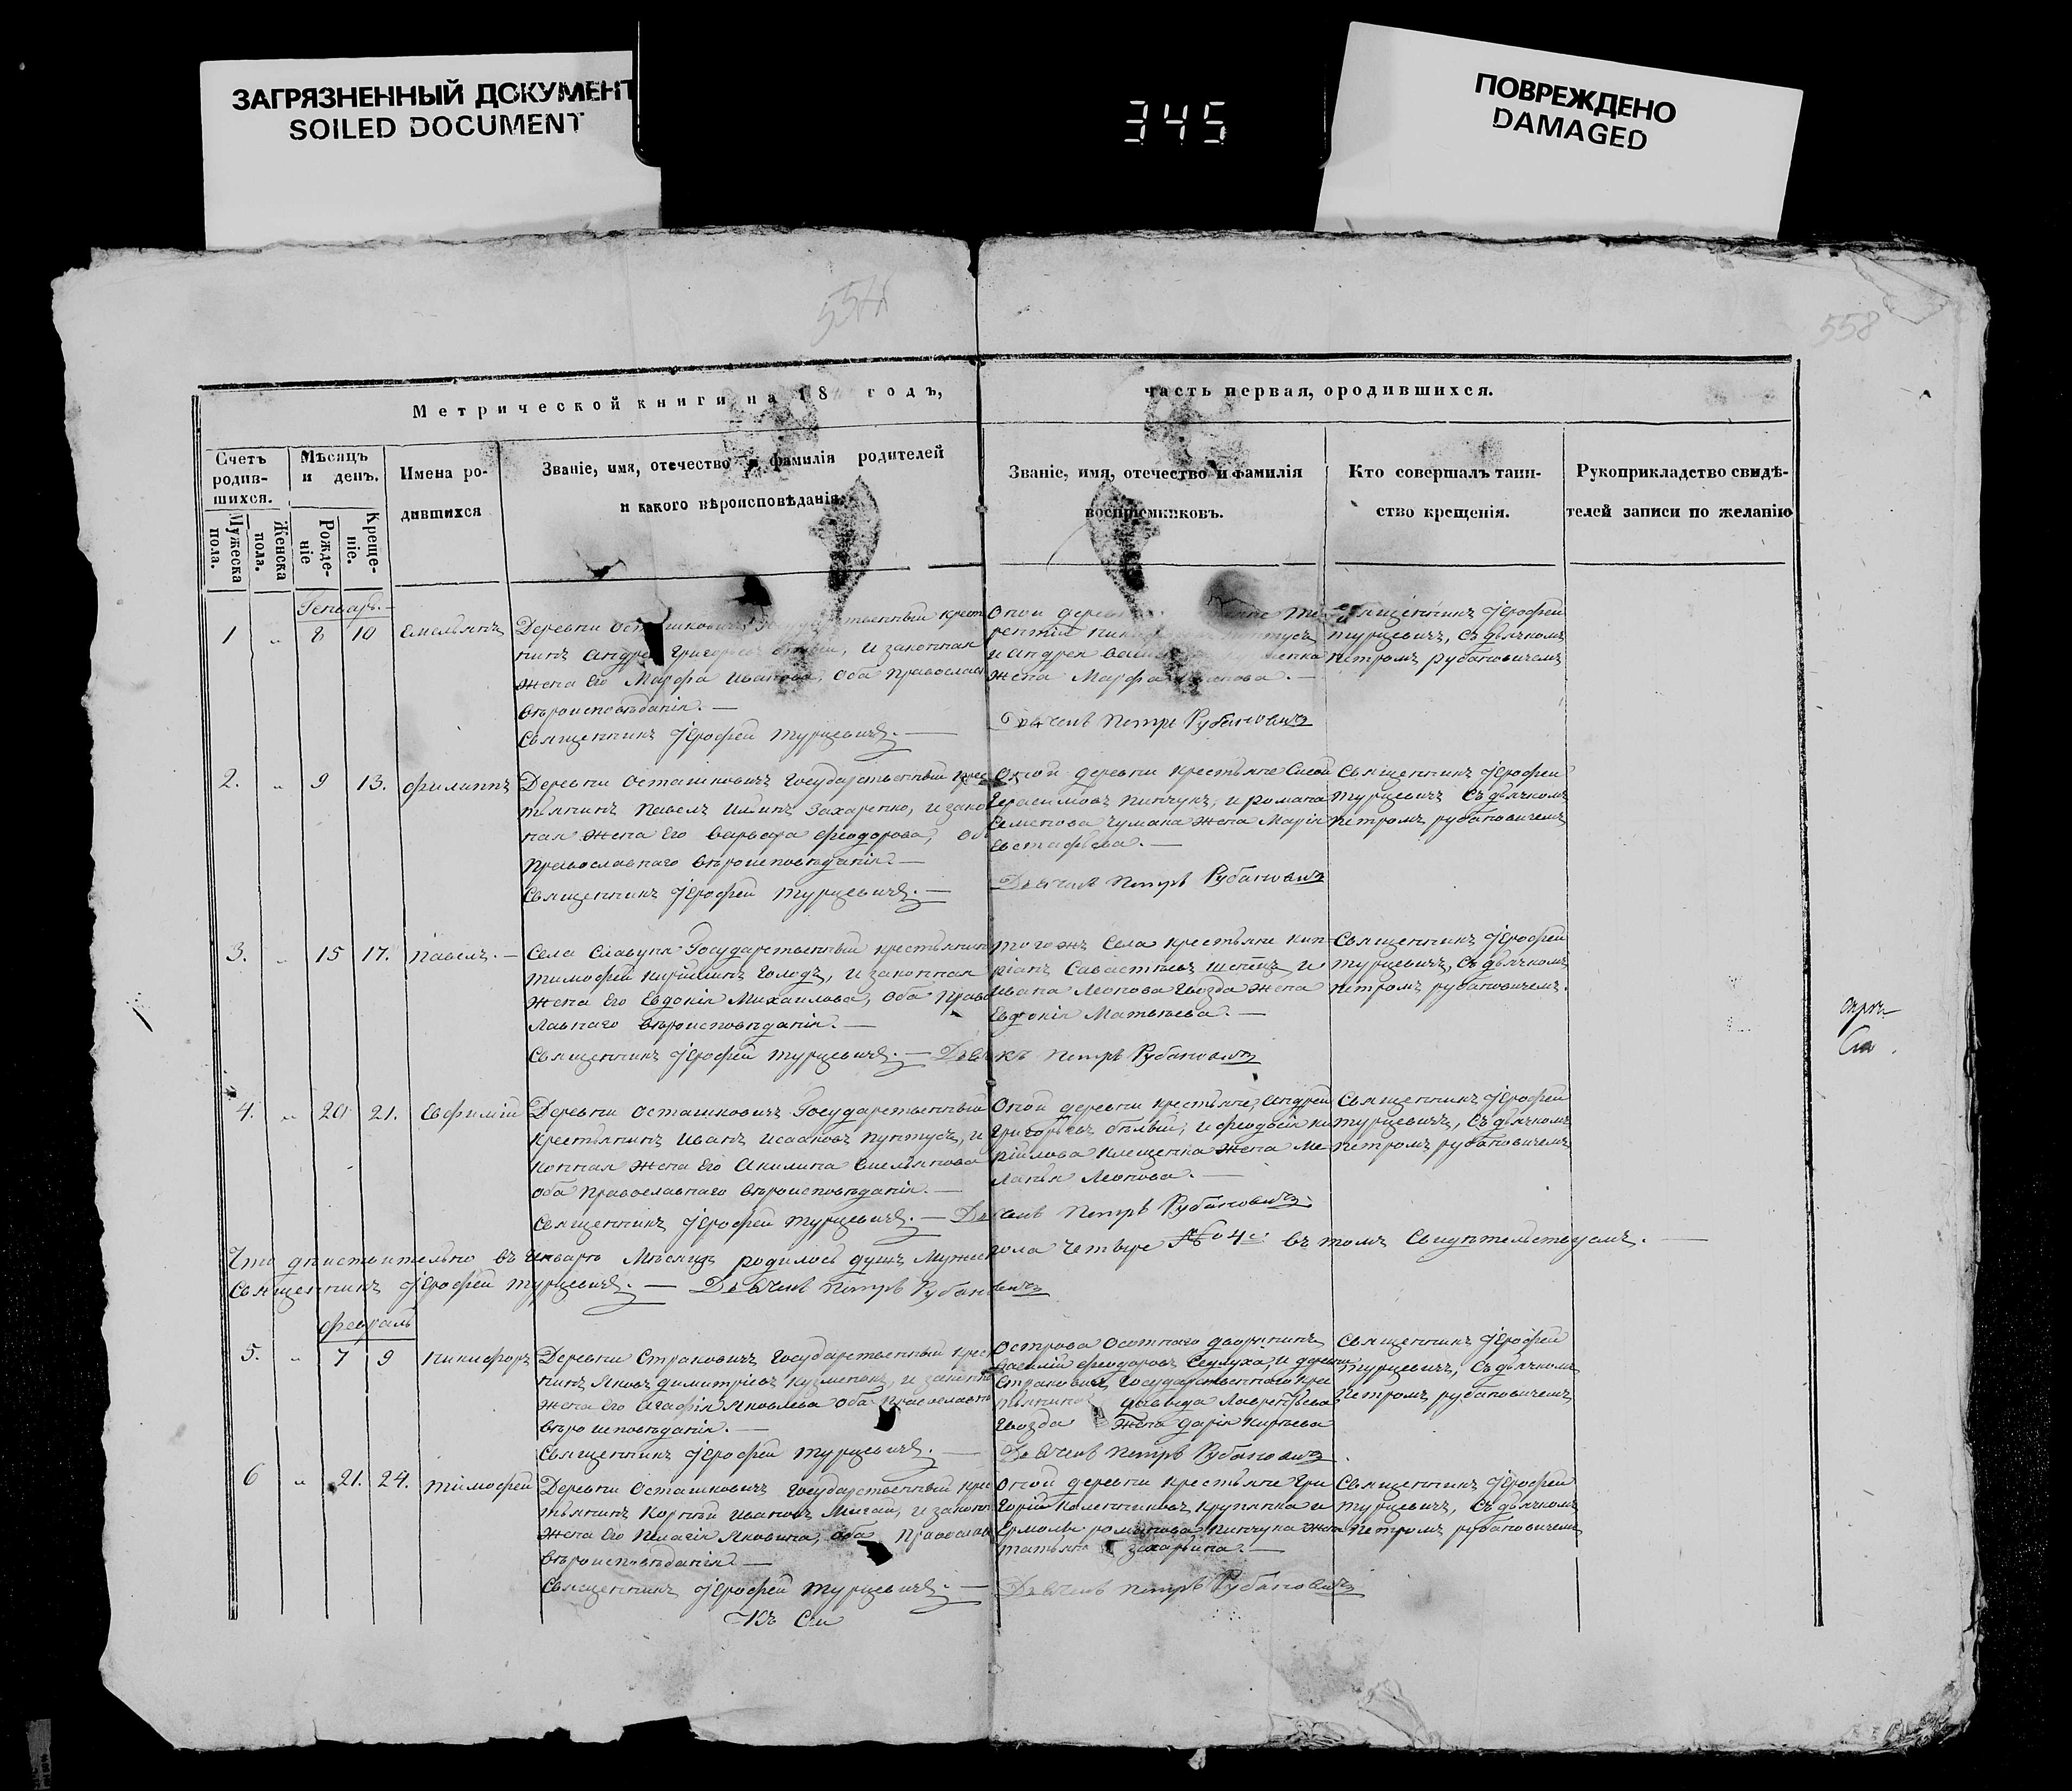 ЗАГРЯЗНЕННЫЙ ДОКУМЕНТ
SOILED DOCUMENT
345
ПОВРЕЖДЕНО
DAMAGED
558
Метрической книги на 18 годъ,
часть первая, ородившихся.
Счетъ родив-шихся.
Мужеска пола.
Женска пола.
Мѣсяцъ и день.
Рожде-ніе
Креще-ніе.
Имена ро-
дившихся
Званіе, имя, отечество и фамилія родителей
и какого вѣроисповѣданія.
Званіе, имя, отечество и фамилія
воспріемниковъ.
Кто совершалъ таин-
ство крещенія.
Рукоприкладство свидѣ-
телей записи по желанію
Генварь.
1 " 8 10 Емельянъ
Деревни Осташковичъ Государственный крест
нинъ Андрей Григорьевъ, и законная
жена его Марфа Иванова, оба православ
вѣроисповѣданія. —
Священникъ Іерофей Турцевичъ. —
Оной дерев
и Андрея
жена Марфа
Дьячекъ Петръ Рубановичъ
Священникъ Іерофей
Турцевичъ, съ дьячкомъ
Петромъ Рубановичемъ
2. " 9 13. Филиппъ
Деревни Осташковичъ Государственный крес
тьянинъ Павелъ Ильинъ Захаренко, и закон
ная жена его Варвара Феодорова, оба
православнаго вѣроисповѣданія. —
Священникъ Іерофей Турцевичъ. —
Оной деревни крестьяне
Герасимовъ Пинчукъ, и Романа
Семенова Чумака жена Марія
Евстафьева. —
Дьячекъ Петръ Рубановичъ
Священникъ Іерофей
Турцевичъ съ дьячкомъ
Петромъ Рубановичемъ
3. " 15 17. Павелъ. —
Села Славуня Государственный крестьянин
Тимофей Кирилинъ Голодъ, и законная
жена его Евдокія Михаилова, оба правос
лавнаго вѣроисповѣданія. —
Священникъ Іерофей Турцевичъ. — Дьячекъ Петръ Рубановичъ
Тогожъ села крестьяне Кип-
ріанъ и
Ивана Леонова Гвозда жена
Евдокія Матвѣева. —
Священникъ Іерофей
Турцевичъ, съ дьячкомъ
Петромъ Рубановичемъ.
4. " 20 21. Евфимій
Деревни Осташковичъ Государственный
крестьянинъ Иванъ Исааковъ Пунтусъ, и
конная жена его Акилина Емельянова
оба православнаго вѣроисповѣданія. —
Священникъ Іерофей Турцевичъ. — Дьячекъ Петръ Рубановичъ
Оной деревни крестьяне, Андрей
Григорьевъ Бѣлый, и Феодосія Ки
рилова Клещенка жена Ме-
ланья Леонова. —
Священникъ Іерофей
Турцевичъ, съ дьячкомъ
Петромъ Рубановичемъ
Что дѣйствительно въ Январѣ мѣсяцѣ родилось душъ мужес пола четыре № 4 въ томъ свидѣтельствуемъ. —
Священникъ Іерофей Турцевичъ. — Дьячекъ Петръ Рубановичъ
Февраль
5. " 7 9 Никифоръ
Деревни Страковичъ Государственный крес
нинъ Яковъ Димитріевъ Кузменокъ, и законн
жена его Агафія Яковлева оба православн
вѣроисповѣданія. —
Священникъ Іерофей Турцевичъ. —
Острова дворянинъ
Василій Феодоровъ и деревни
Страковичъ Государственнаго кре
Давида Лаврентьева
Гвозда жена Дарія
Дьячекъ Петръ Рубановичъ
Священникъ Іерофей
Турцевичъ, съ дьячкомъ
Петромъ Рубановичемъ
6 " 21. 24. Тимофей
Деревни Осташковичъ Государственный крес
тьянинъ Корній Ивановъ и законн
жена его Пелагія Яковлева, оба православ
вѣроисповѣданія. —
Священникъ Іерофей Турцевичъ. —
Оной деревни крестьяне Гри
горій и
Ермолы Романова Пинчука жена
Татьяна Захарьина. —
Дьячекъ Петръ Рубановичъ
Священникъ Іерофей
Турцевичъ, съ дьячкомъ
Петромъ Рубановичемъ